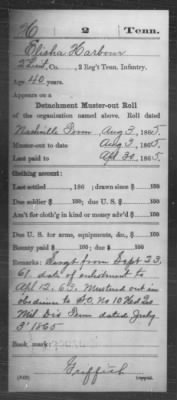 H 2 Tenn.
Elisha Harbour
2 Lieut, Co. , 2 Reg't Tenn. Infantry.
Age 40 years.
Appears on a
Detachment Muster-out Roll
of the organization named above. Roll dated
Nashville Tenn Aug 3, 1865.
Muster-out to date Aug 3, 1865.
Last paid to Apl 30, 1865.
Clothing account:
Last settled , 186 ; drawn since $ 100
Due soldier $ 100; due U. S. $ 100
Am't for cloth'g in kind or money adv'd $ 100
Due U. S. for arms, equipments, &c., $ 100
Bounty paid $ 100; due $ 100
Remarks: Sergt from Sept 23,
61, date of enlistment to
Apl 12, 63. Mustered out in
obedience to S.O. No 10 Hed Qrs
Mil Dis Tenn dated July
3" 1865
Book mark:
Griffith
Copyist.